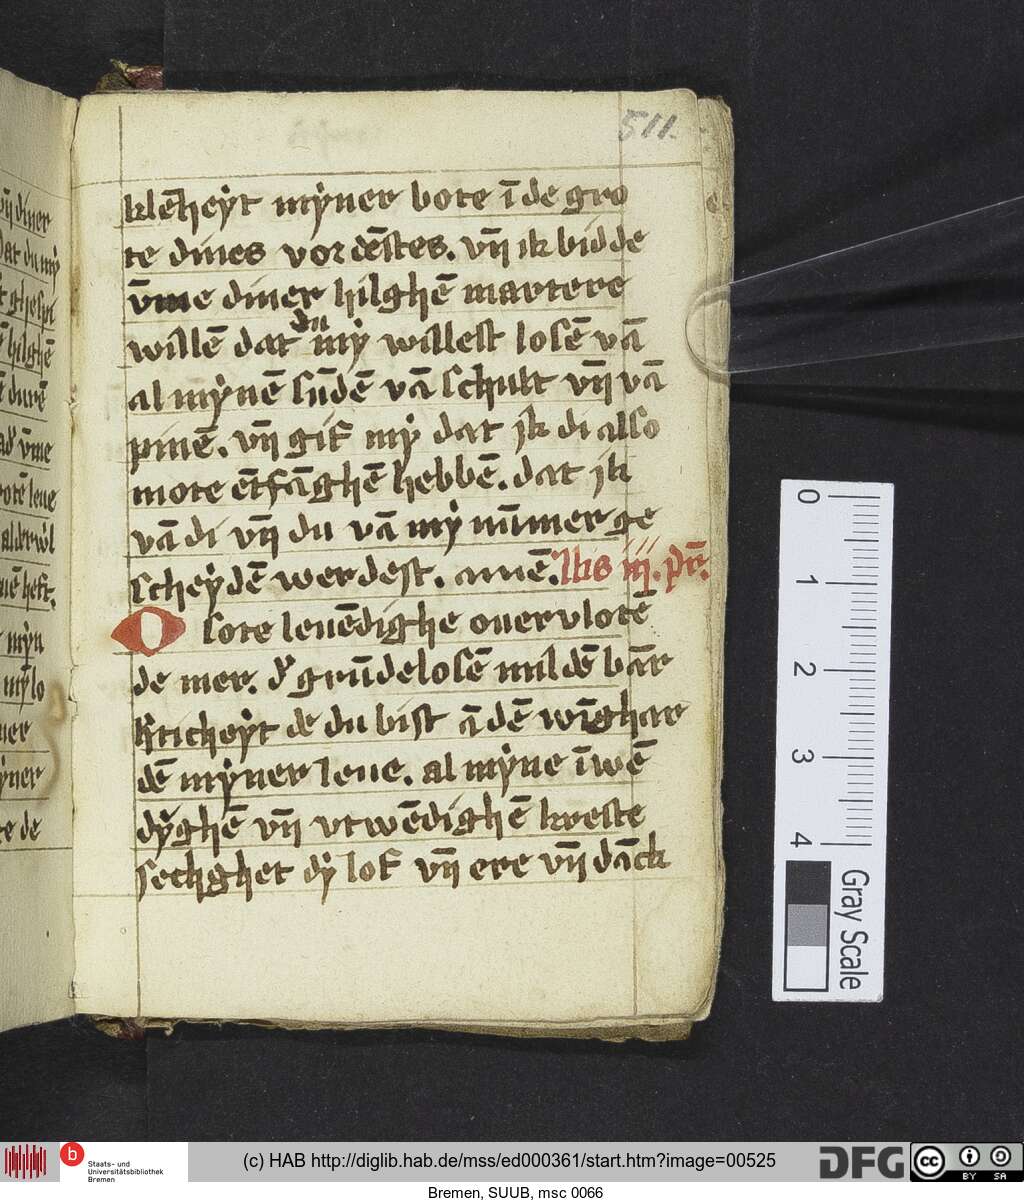 511.
klēheẏt mẏner bote ī de gro
te dines vordēstes. vn̄ ik bidde
v̄me diner hilghē martere
willē dat du mẏ willest losē vā
al mẏnē sūdē vā schult vn̄ vā
pinē. vn̄ gif mẏ dat jk di also
mote ētfāghē hebbē. dat jk
vā di vn̄ du vā mẏ nūmer ge
scheẏdē werdest. amē.
O sote leuēdighe ouervlotē
de mer. d' grūdelosē mildē bār
h'ticheẏt de du bist ā dē wīghar
dē mẏner leue. al mẏne īwē
dẏghē vn̄ vtwēdighē kreste
sechghet dẏ lof vn̄ ere vn̄ dāck
0
1
2
3
4
Gray Scale
b Staats- und
Universitätsbibliothek
Bremen
(c) HAB http://diglib.hab.de/mss/ed000361/start.htm?image=00525
DFG
cc BY SA
Bremen, SUUB, msc 0066